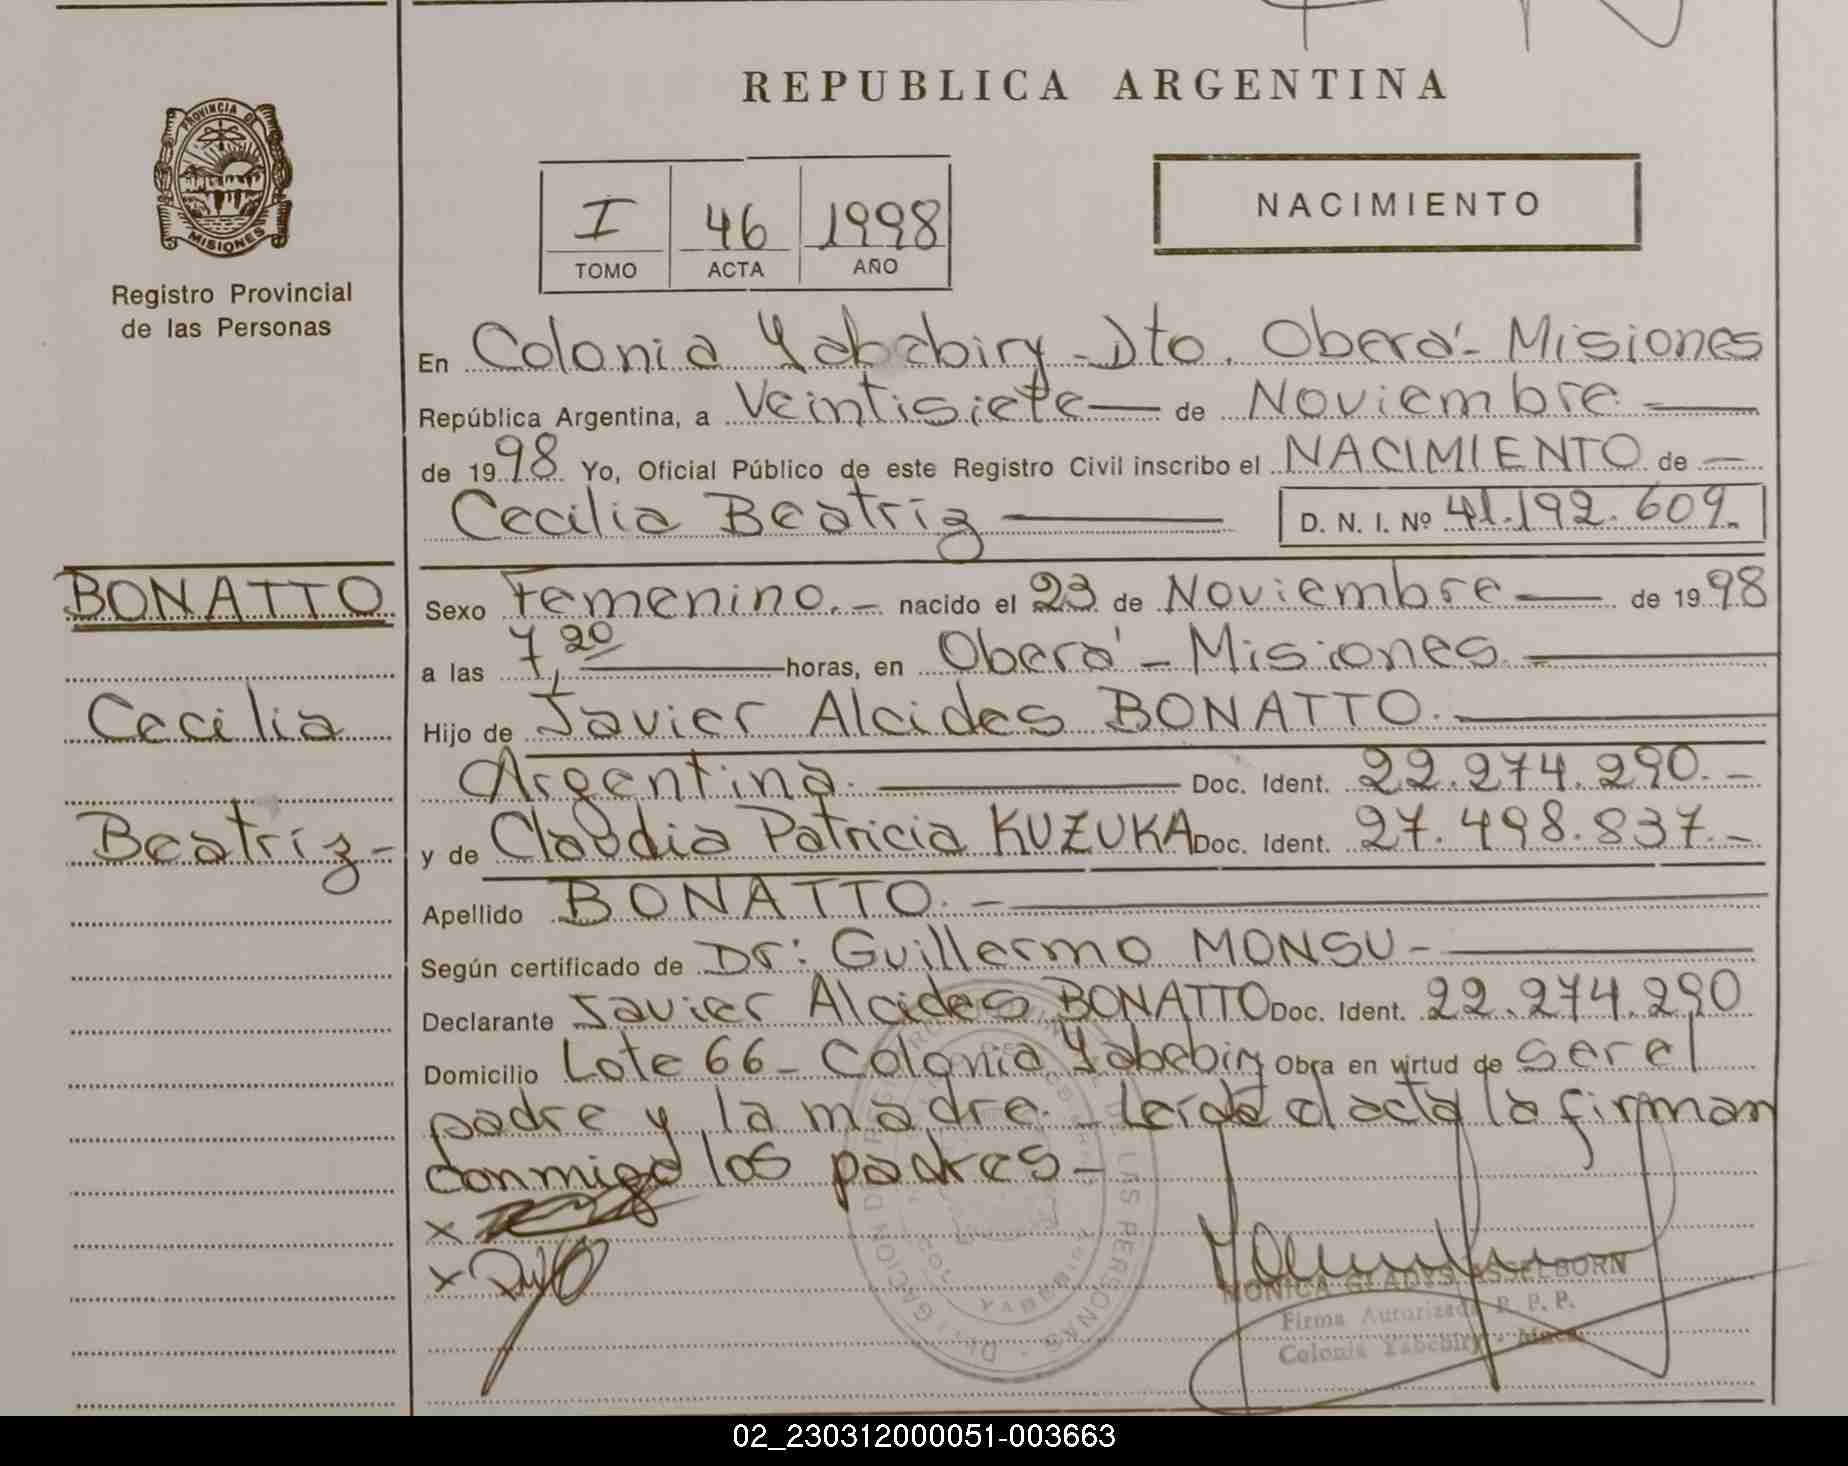 REPUBLICA ARGENTINA
PROVINCIA DE
MISIONES
Registro Provincial
de las Personas
I 46 1998
TOMO ACTA AÑO
NACIMIENTO
En Colonia Yabebiry - Dto. Oberá - Misiones
República Argentina, a Veintisiete — de Noviembre —
de 1998 Yo, Oficial Público de este Registro Civil inscribo el NACIMIENTO de —
Cecilia Beatriz — D. N. I. Nº 41.192.609.
BONATTO
Cecilia
Beatriz -
Sexo Femenino. - nacido el 23 de Noviembre — de 1998
a las 7,20 — horas, en Oberá - Misiones —
Hijo de Javier Alcides BONATTO. —
Argentina. — Doc. Ident. 22.274.290. -
y de Claudia Patricia KUZUKA Doc. Ident. 27.498.837. -
Apellido BONATTO. - —
Según certificado de Dr: Guillermo MONSU - —
Declarante Javier Alcides BONATTO Doc. Ident. 22.274.290
Domicilio Lote 66 - Colonia Yabebiry Obra en virtud de ser el
padre y la madre. Leída el acta la firman
conmigo los padres -
x
x
MONICA GLADYS ASSELBORN
Firma Autorizada R. P. P.
Colonia Yabebiry - Mnes.
02_230312000051-003663